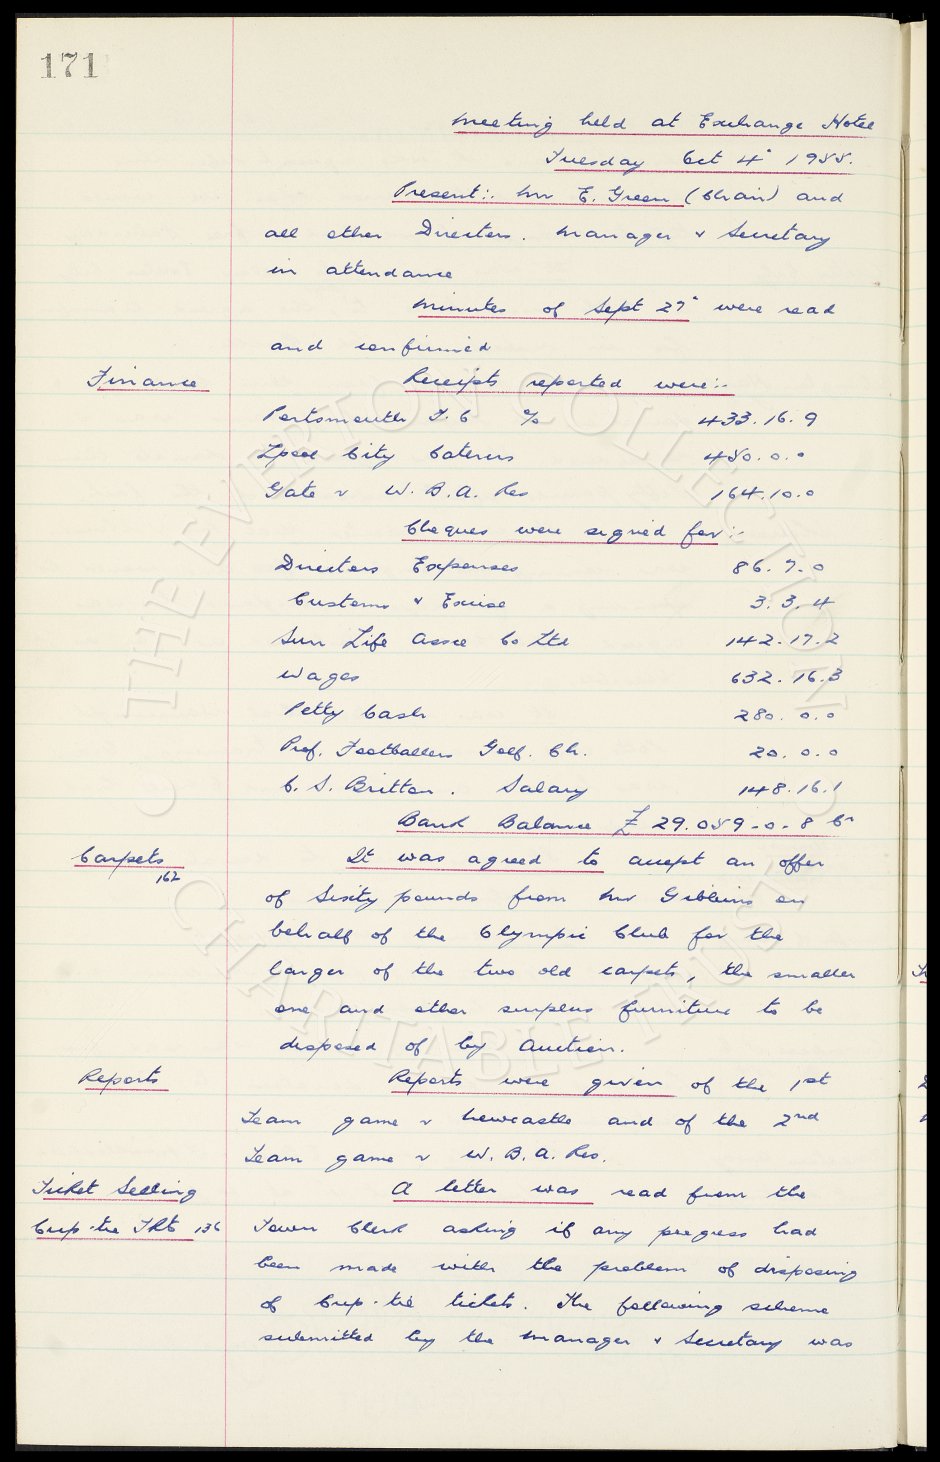 171
Meeting held at Exchange Hotel
Tuesday Oct 4" 1955.
Present:. Mr E. Green (Chair) and
all other Directors. Manager & Secretary
in attendance
Minutes of Sept 27" were read
and confirmed
Finance
Receipts reported were:-
Portsmouth F.C % 433.16.9
Lpool City Caterers 450.0.0
Gate v W.B.A. Res 164.10.0
Cheques were signed for:-
Directors Expenses 86.7.0
Customs & Excise 3.3.4
Sun Life Assce Co Ltd 142.17.2
Wages 632.16.3
Petty Cash 280.0.0
Prof. Footballers Golf. Ch. 20.0.0
C. S. Britton. Salary 148.16.1
Bank Balance £29.059-0-8 Cr
Carpets
162
It was agreed to accept an offer
of Sixty pounds from Mr Gibbins on
behalf of the Olympic Club for the
larger of the two old carpets, the smaller
one and other surplus furniture to be
disposed of by Auction.
Reports
Reports were given of the 1st
Team game v Newcastle and of the 2nd
Team game v W.B.A. Res.
Ticket Selling
Cup-tie TKts 136
A letter was read from the
Town Clerk asking if any progress had
been made with the problem of disposing
of Cup-tie tickets. The following scheme
submitted by the Manager & Secretary was
© THE EVERTON COLLECTION
CHARITABLE TRUST